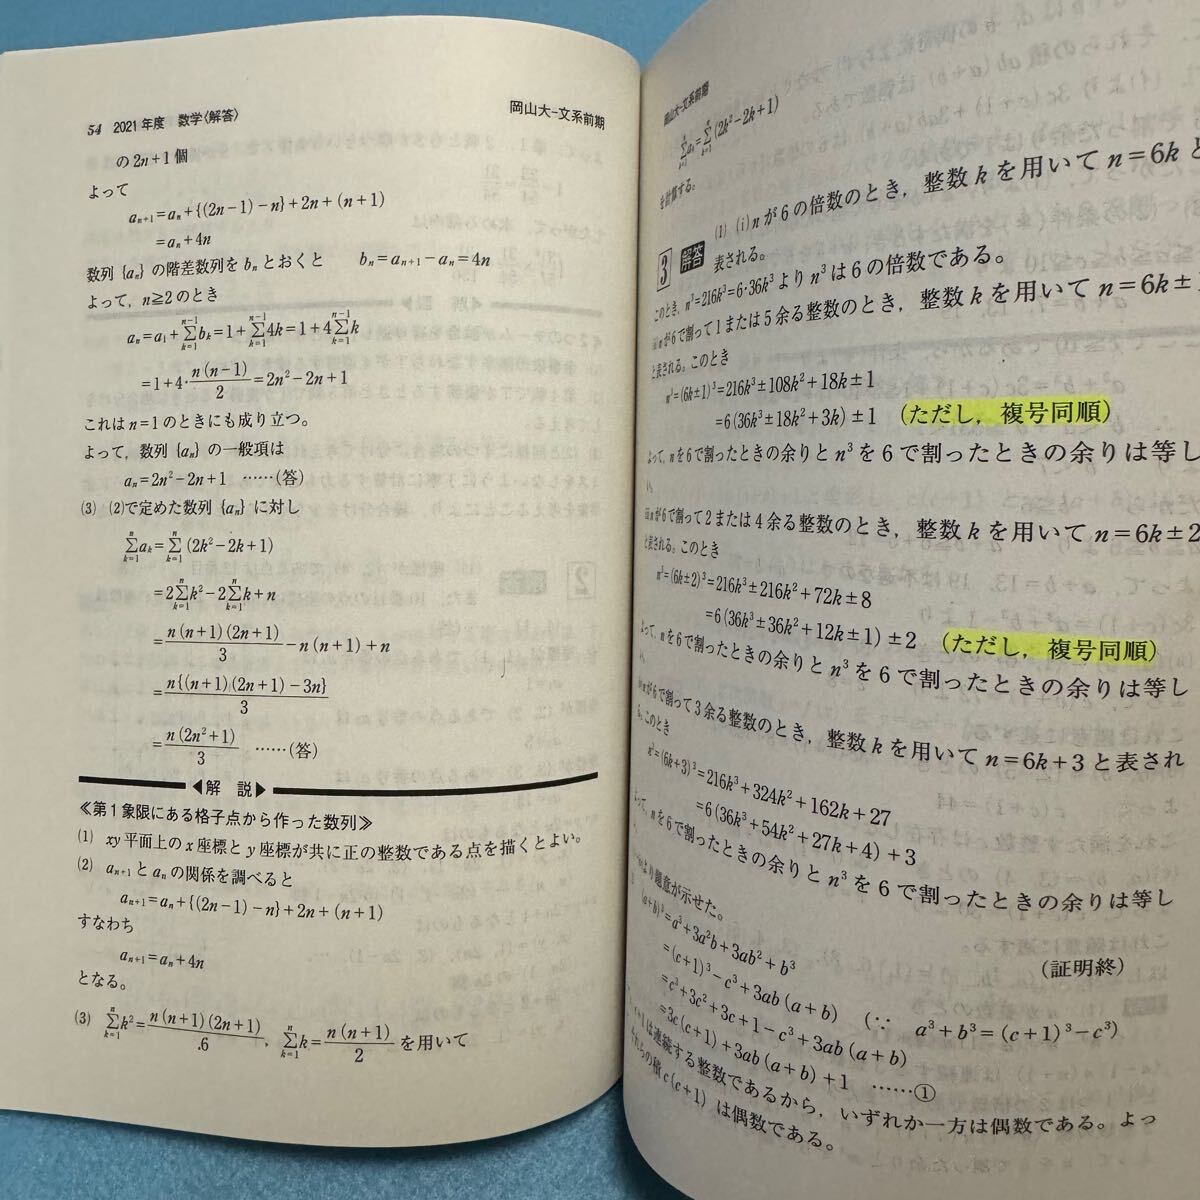 54 2021年度 数学〈解答〉 岡山大-文系前期
の2n+1個
よって
aₙ₊₁=aₙ+{(2n−1)−n}+2n+(n+1)
=aₙ+4n
数列{aₙ}の階差数列をbₙとおくと bₙ=aₙ₊₁−aₙ=4n
よって，n≧2のとき
aₙ=a₁+Σ[k=1→n−1]bₖ=1+Σ[k=1→n−1]4k=1+4Σ[k=1→n−1]k
=1+4・n(n−1)/2=2n²−2n+1
これはn=1のときにも成り立つ。
よって，数列{aₙ}の一般項は
aₙ=2n²−2n+1 ……(答)
(3) (2)で定めた数列{aₙ}に対し
Σ[k=1→n]aₖ=Σ[k=1→n](2k²−2k+1)
=2Σ[k=1→n]k²−2Σ[k=1→n]k+n
=n(n+1)(2n+1)/3−n(n+1)+n
=n{(n+1)(2n+1)−3n}/3
=n(2n²+1)/3 ……(答)
◀解 説▶
≪第1象限にある格子点から作った数列≫
(1) xy平面上のx座標とy座標が共に正の整数である点を描くとよい。
(2) aₙ₊₁とaₙの関係を調べると
aₙ₊₁=aₙ+{(2n−1)−n}+2n+(n+1)
すなわち
aₙ₊₁=aₙ+4n
となる。
(3) Σ[k=1→n]k²=n(n+1)(2n+1)/6，Σ[k=1→n]k=n(n+1)/2 を用いて
岡山大-文系前期
=Σ(2k²−2k+1)
を計算する。
3 解答 (1) (i)nが6の倍数のとき，整数kを用いてn=6kと
表される。
このとき，n³=216k³=6・36k³よりn³は6の倍数である。
nが6で割って1または5余る整数のとき，整数kを用いてn=6k±1
と表される。このとき
n³=(6k±1)³=216k³±108k²+18k±1
=6(36k³±18k²+3k)±1 (ただし，複号同順)
よって，nを6で割ったときの余りとn³を6で割ったときの余りは等し
い。
nが6で割って2または4余る整数のとき，整数kを用いてn=6k±2
と表される。このとき
n³=(6k±2)³=216k³±216k²+72k±8
=6(36k³±36k²+12k±1)±2 (ただし，複号同順)
よって，nを6で割ったときの余りとn³を6で割ったときの余りは等し
い。
nが6で割って3余る整数のとき，整数kを用いてn=6k+3と表され
る。このとき
n³=(6k+3)³=216k³+324k²+162k+27
=6(36k³+54k²+27k+4)+3
よって，nを6で割ったときの余りとn³を6で割ったときの余りは等し
より題意が示せた。 (証明終)
(a+b)³=a³+3a²b+3ab²+b³
=(c+1)³−c³+3ab(a+b) (∵ a³+b³=(c+1)³−c³)
=c³+3c²+3c+1−c³+3ab(a+b)
=3c(c+1)+3ab(a+b)+1 ……①
c+1は連続する整数であるから，いずれか一方は偶数である。よっ
それらの積c(c+1)は偶数である。